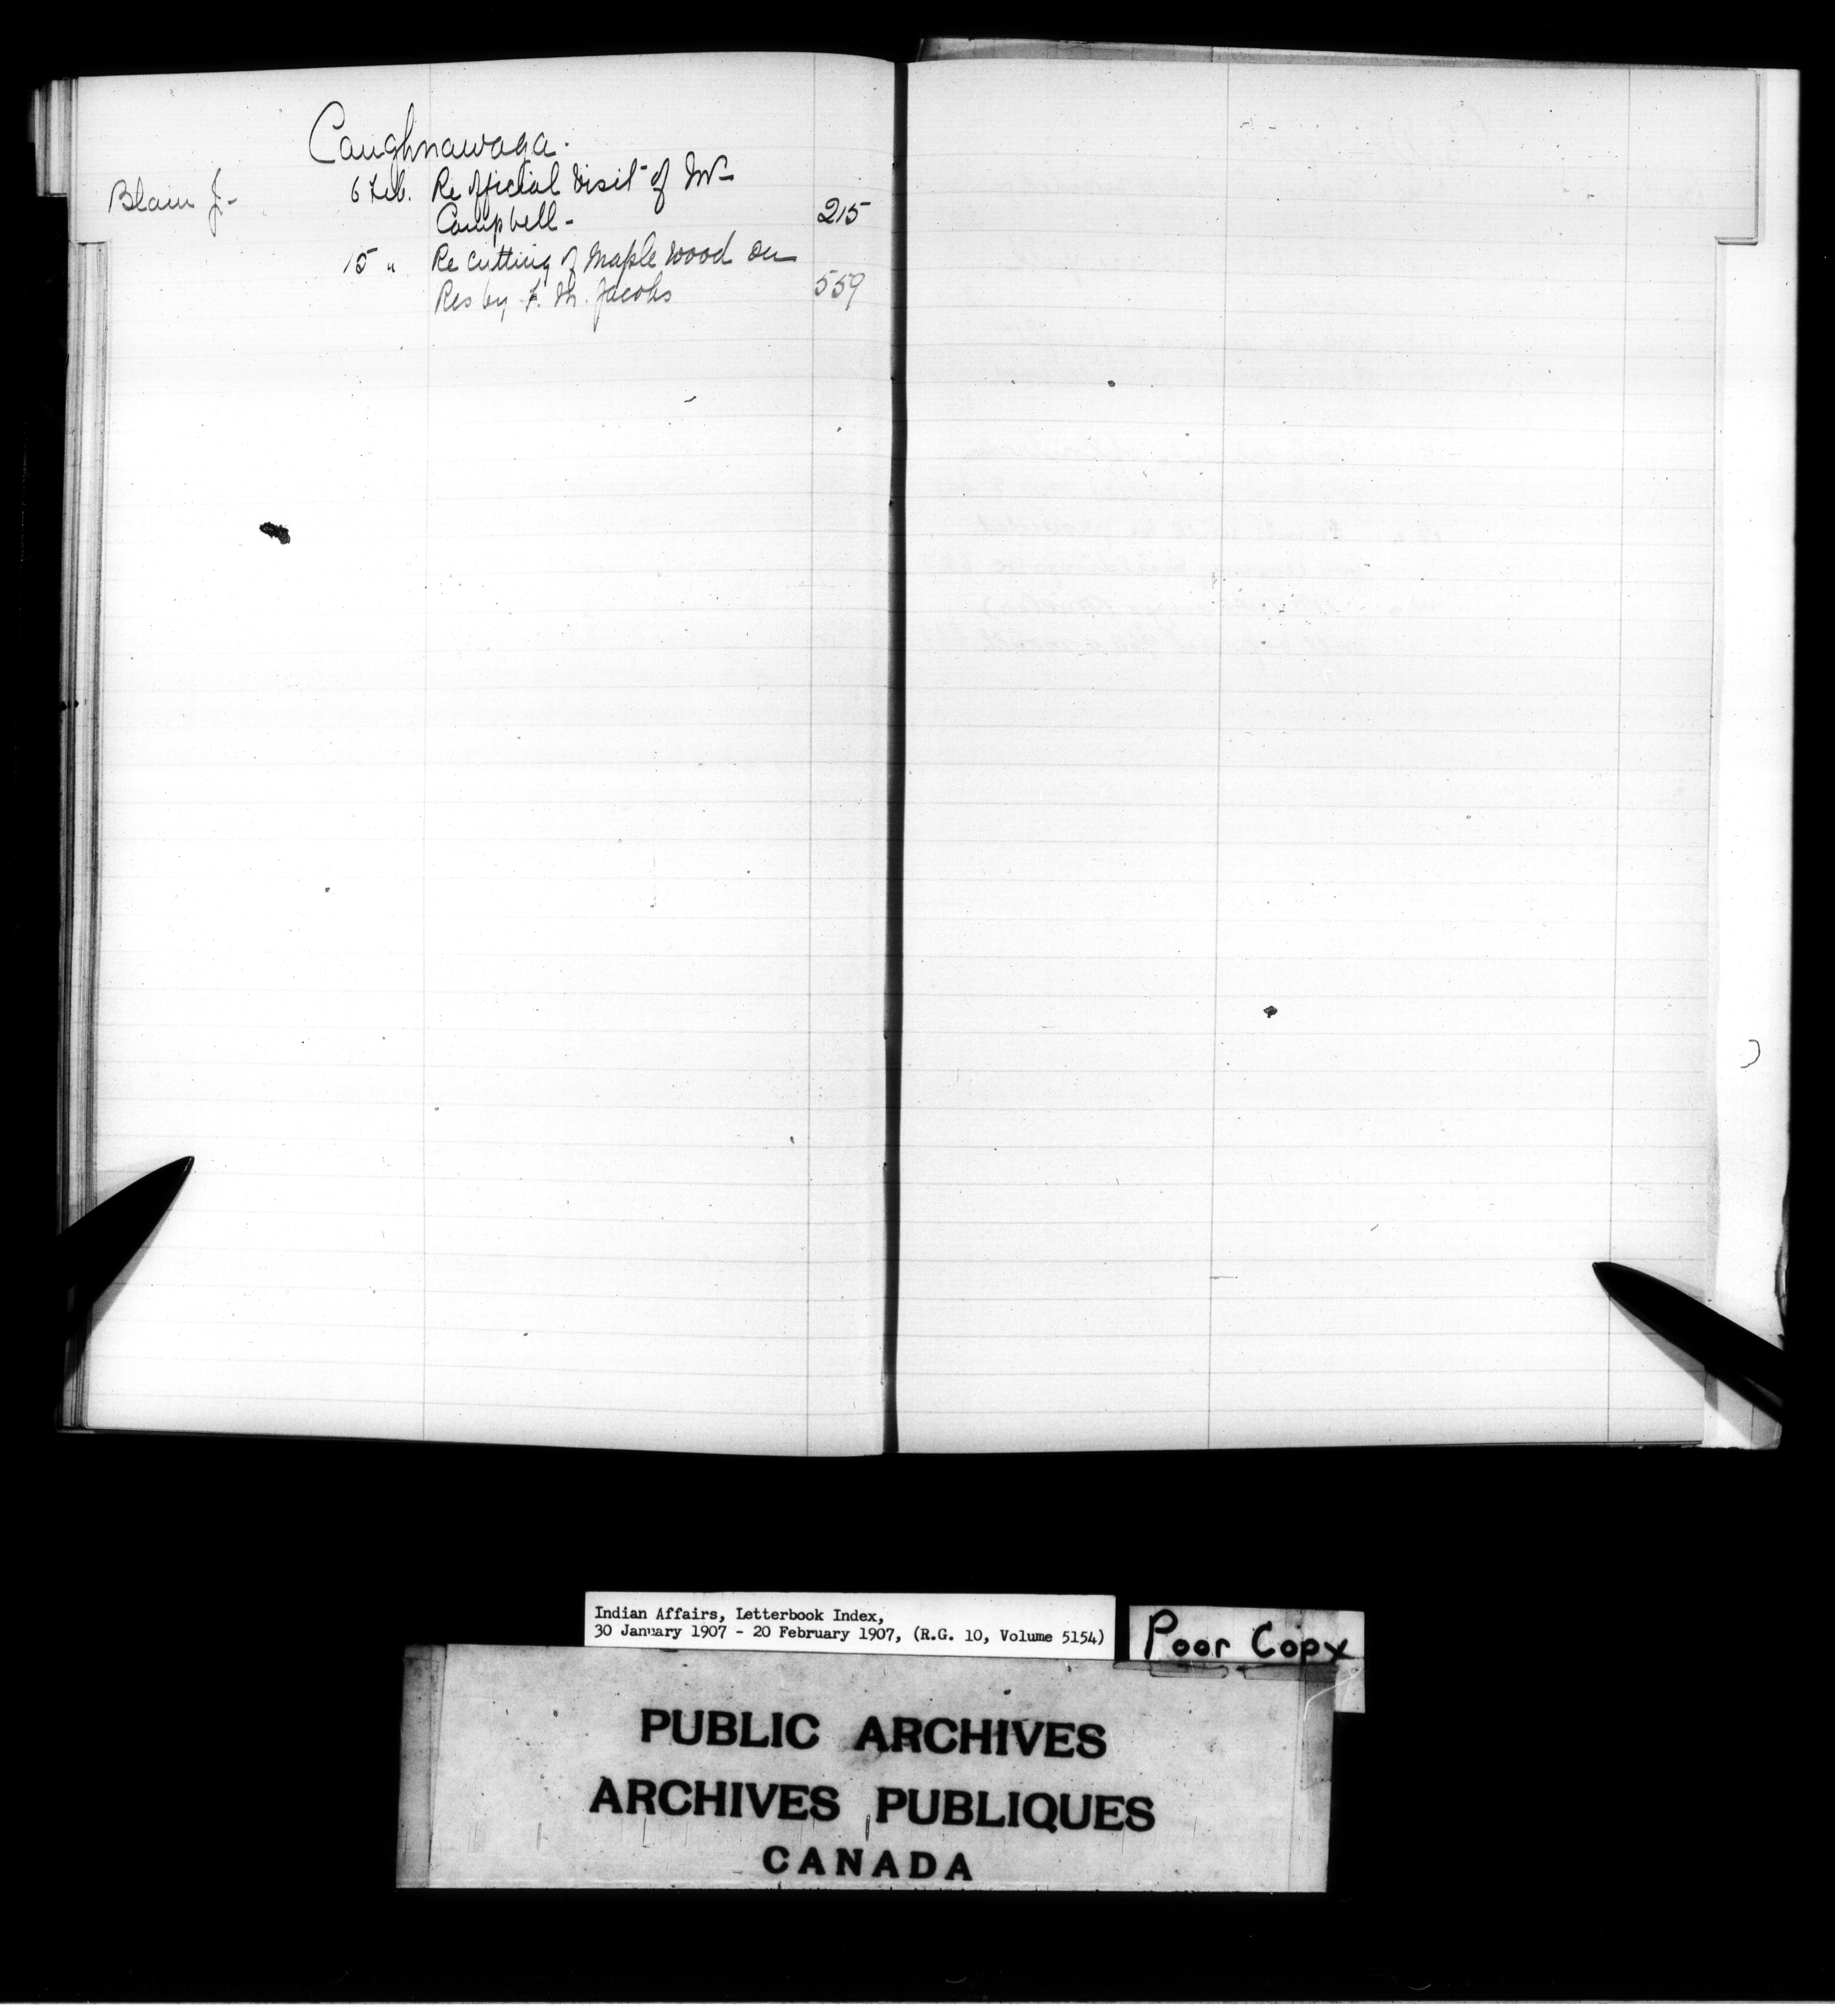 Caughnawaga.
Blain J- 6 Feb. Re official visit of Mr
Campbell- 215
15 " Re cutting of Maple wood on
Res by F. M. Jacobs 559
Indian Affairs, Letterbook Index,
30 January 1907 - 20 February 1907, (R.G. 10, Volume 5154)
Poor Copy
PUBLIC ARCHIVES
ARCHIVES PUBLIQUES
CANADA